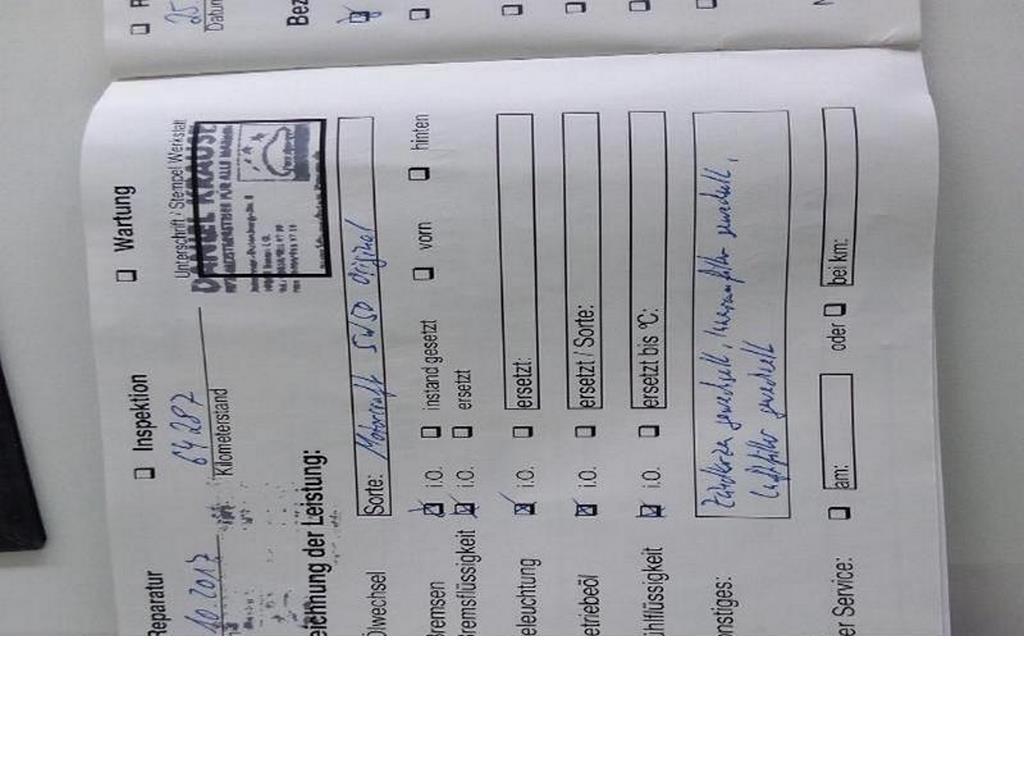 Reparatur Inspektion Wartung
10.2017 64 287 Unterschrift / Stempel Werkstatt
Kilometerstand
DANIEL KRAUSE
FÜR ALLE
eichnung der Leistung:
Ölwechsel Sorte: Motorcraft 5W30 Original
Bremsen i.O. instand gesetzt vorn hinten
Bremsflüssigkeit i.O. ersetzt
eleuchtung i.O. ersetzt:
etriebeöl i.O. ersetzt / Sorte:
ühlflüssigkeit i.O. ersetzt bis °C:
onstiges: Zündkerzen gewechselt, Innenraumfilter gewechselt,
Luftfilter gewechselt
er Service: am: oder bei km:
R
25
Datum
Bez